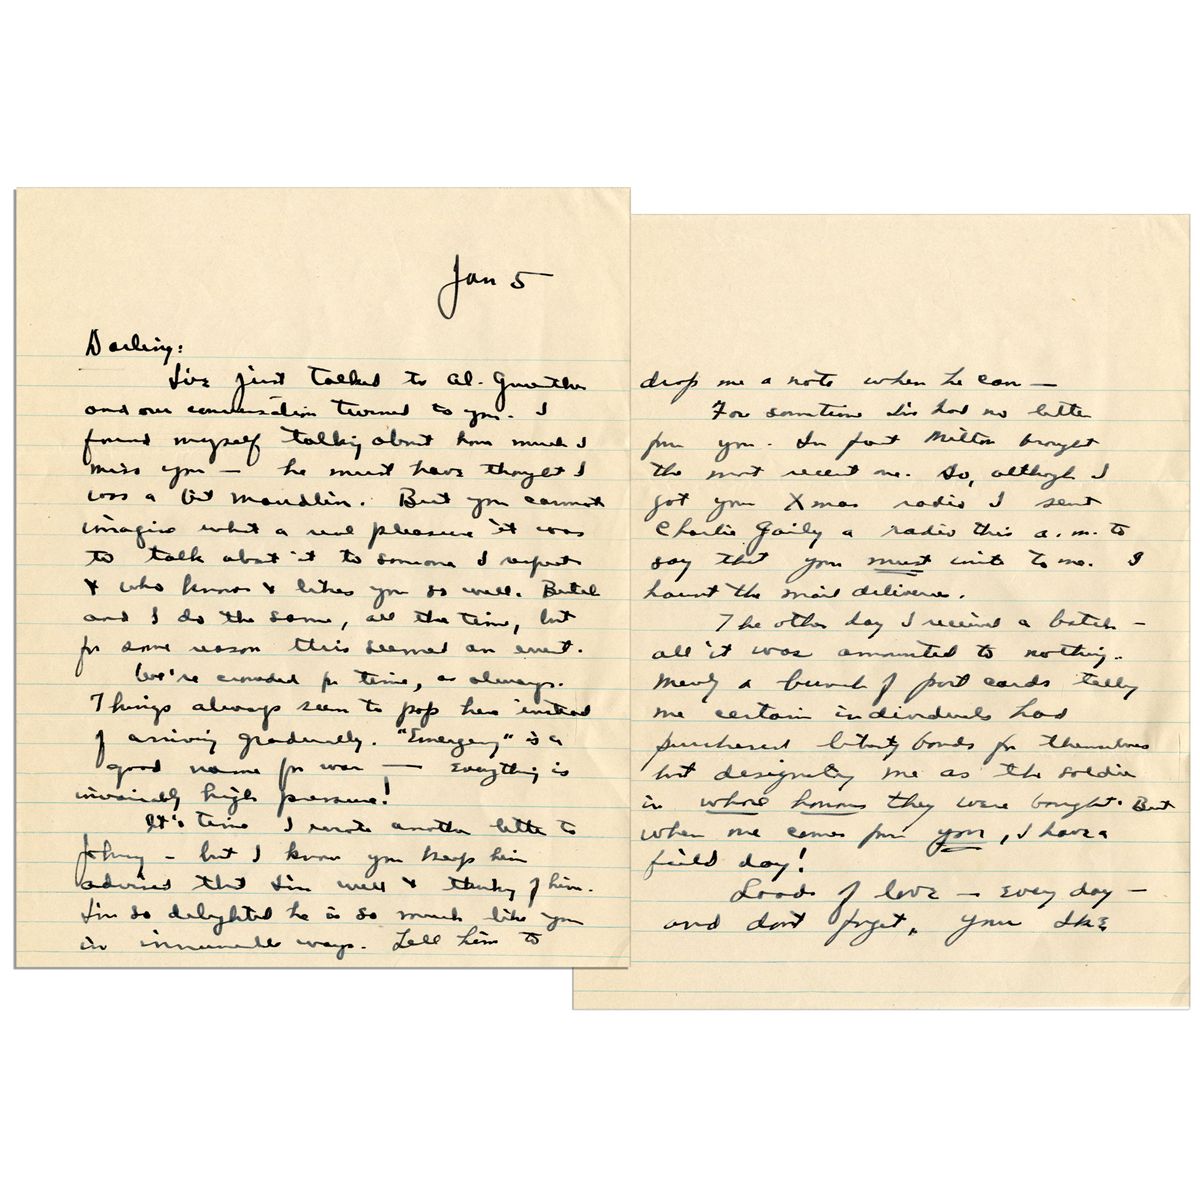 Jan 5
Darling:
I've just talked to Al. Gruenther
and our conversation turned to you. I
found myself talking about how much I
miss you — he must have thought I
was a bit maudlin. But you cannot
imagine what a real pleasure it was
to talk about it to someone I respect
& who knows & likes you so well. Butch
and I do the same, all the time, but
for some reason this seemed an event.
We're crowded for time, as always.
Things always seem to pop here instead
of arriving gradually. "Emergency" is a
good name for war — Everything is
invariably high pressure!
It's time I wrote another letter to
Johnny — but I know you keep him
advised that I'm well & thinking of him.
I'm so delighted he is so much like you
in innumerable ways. Tell him to
drop me a note when he can —
For sometime I've had no letter
from you. In fact Milton brought
the most recent one. So, although I
got your Xmas radio I sent
Charlie Gailey a radio this a.m. to
say that you must write to me. I
haunt the mail deliveries.
The other day I received a batch —
all it was amounted to nothing.
Merely a bunch of post cards telling
me certain individuals had
purchased liberty bonds for themselves
but designating me as the soldier
in whose honour they were bought. But
when one comes from you, I have a
field day!
Loads of love — Every day —
and don't forget, Your Ike